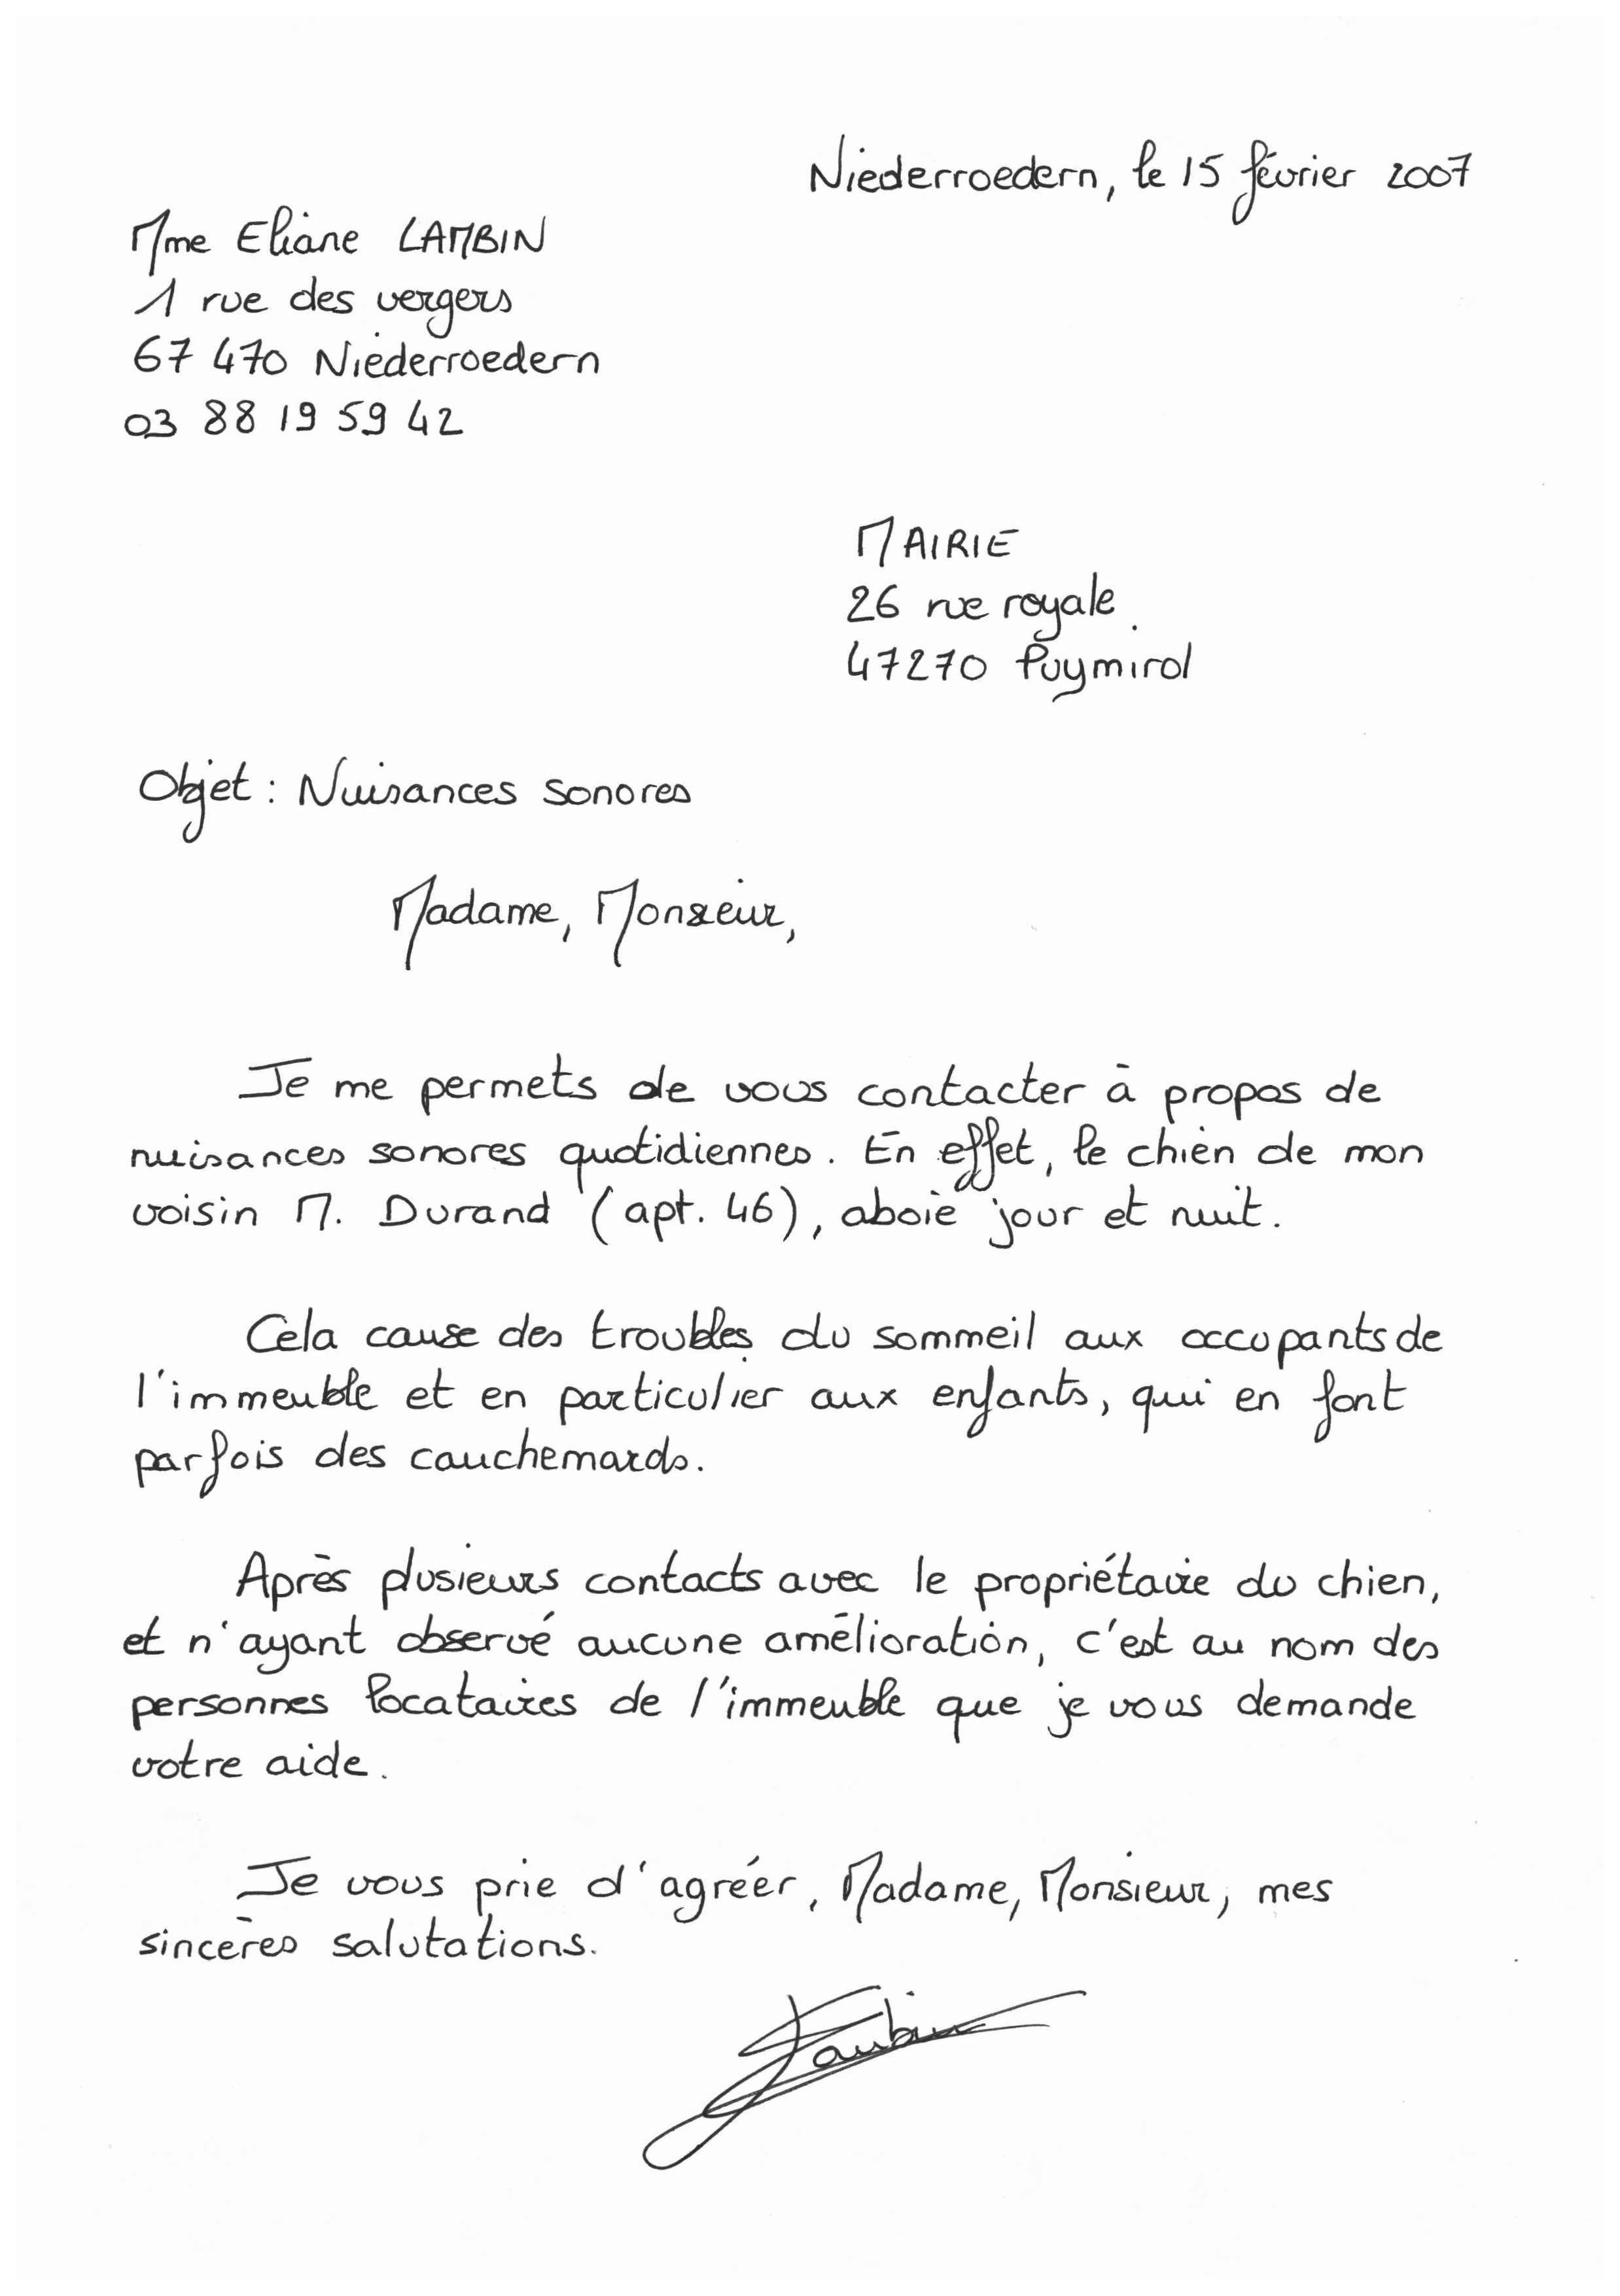 Niederroedern, le 15 février 2007
Mme Eliane LAMBIN
1 rue des vergers
67 470 Niederroedern
03 88 19 59 42
MAIRIE
26 rue royale
47270 Puymirol
Objet : Nuisances sonores
Madame, Monsieur,
Je me permets de vous contacter à propos de
nuisances sonores quotidiennes. En effet, le chien de mon
voisin M. Durand (apt. 46), aboie jour et nuit.
Cela cause des troubles du sommeil aux occupants de
l'immeuble et en particulier aux enfants, qui en font
parfois des cauchemards.
Après plusieurs contacts avec le propriétaire du chien,
et n'ayant observé aucune amélioration, c'est au nom des
personnes locataires de l'immeuble que je vous demande
votre aide.
Je vous prie d'agréer, Madame, Monsieur, mes
sincères salutations.
Lambin